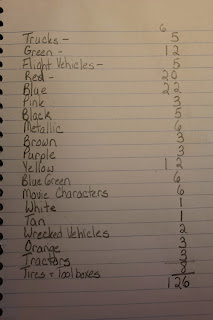 6
Trucks - 5
Green - 12
Flight Vehicles - 5
Red - 20
Blue 22
Pink 3
Black 5
Metallic 6
Brown 3
Purple 3
Yellow 12
Blue Green 6
Movie Characters 6
White 1
Tan 1
Wrecked Vehicles 2
Orange 3
Tractors 3
Tires + Toolboxes 8
126